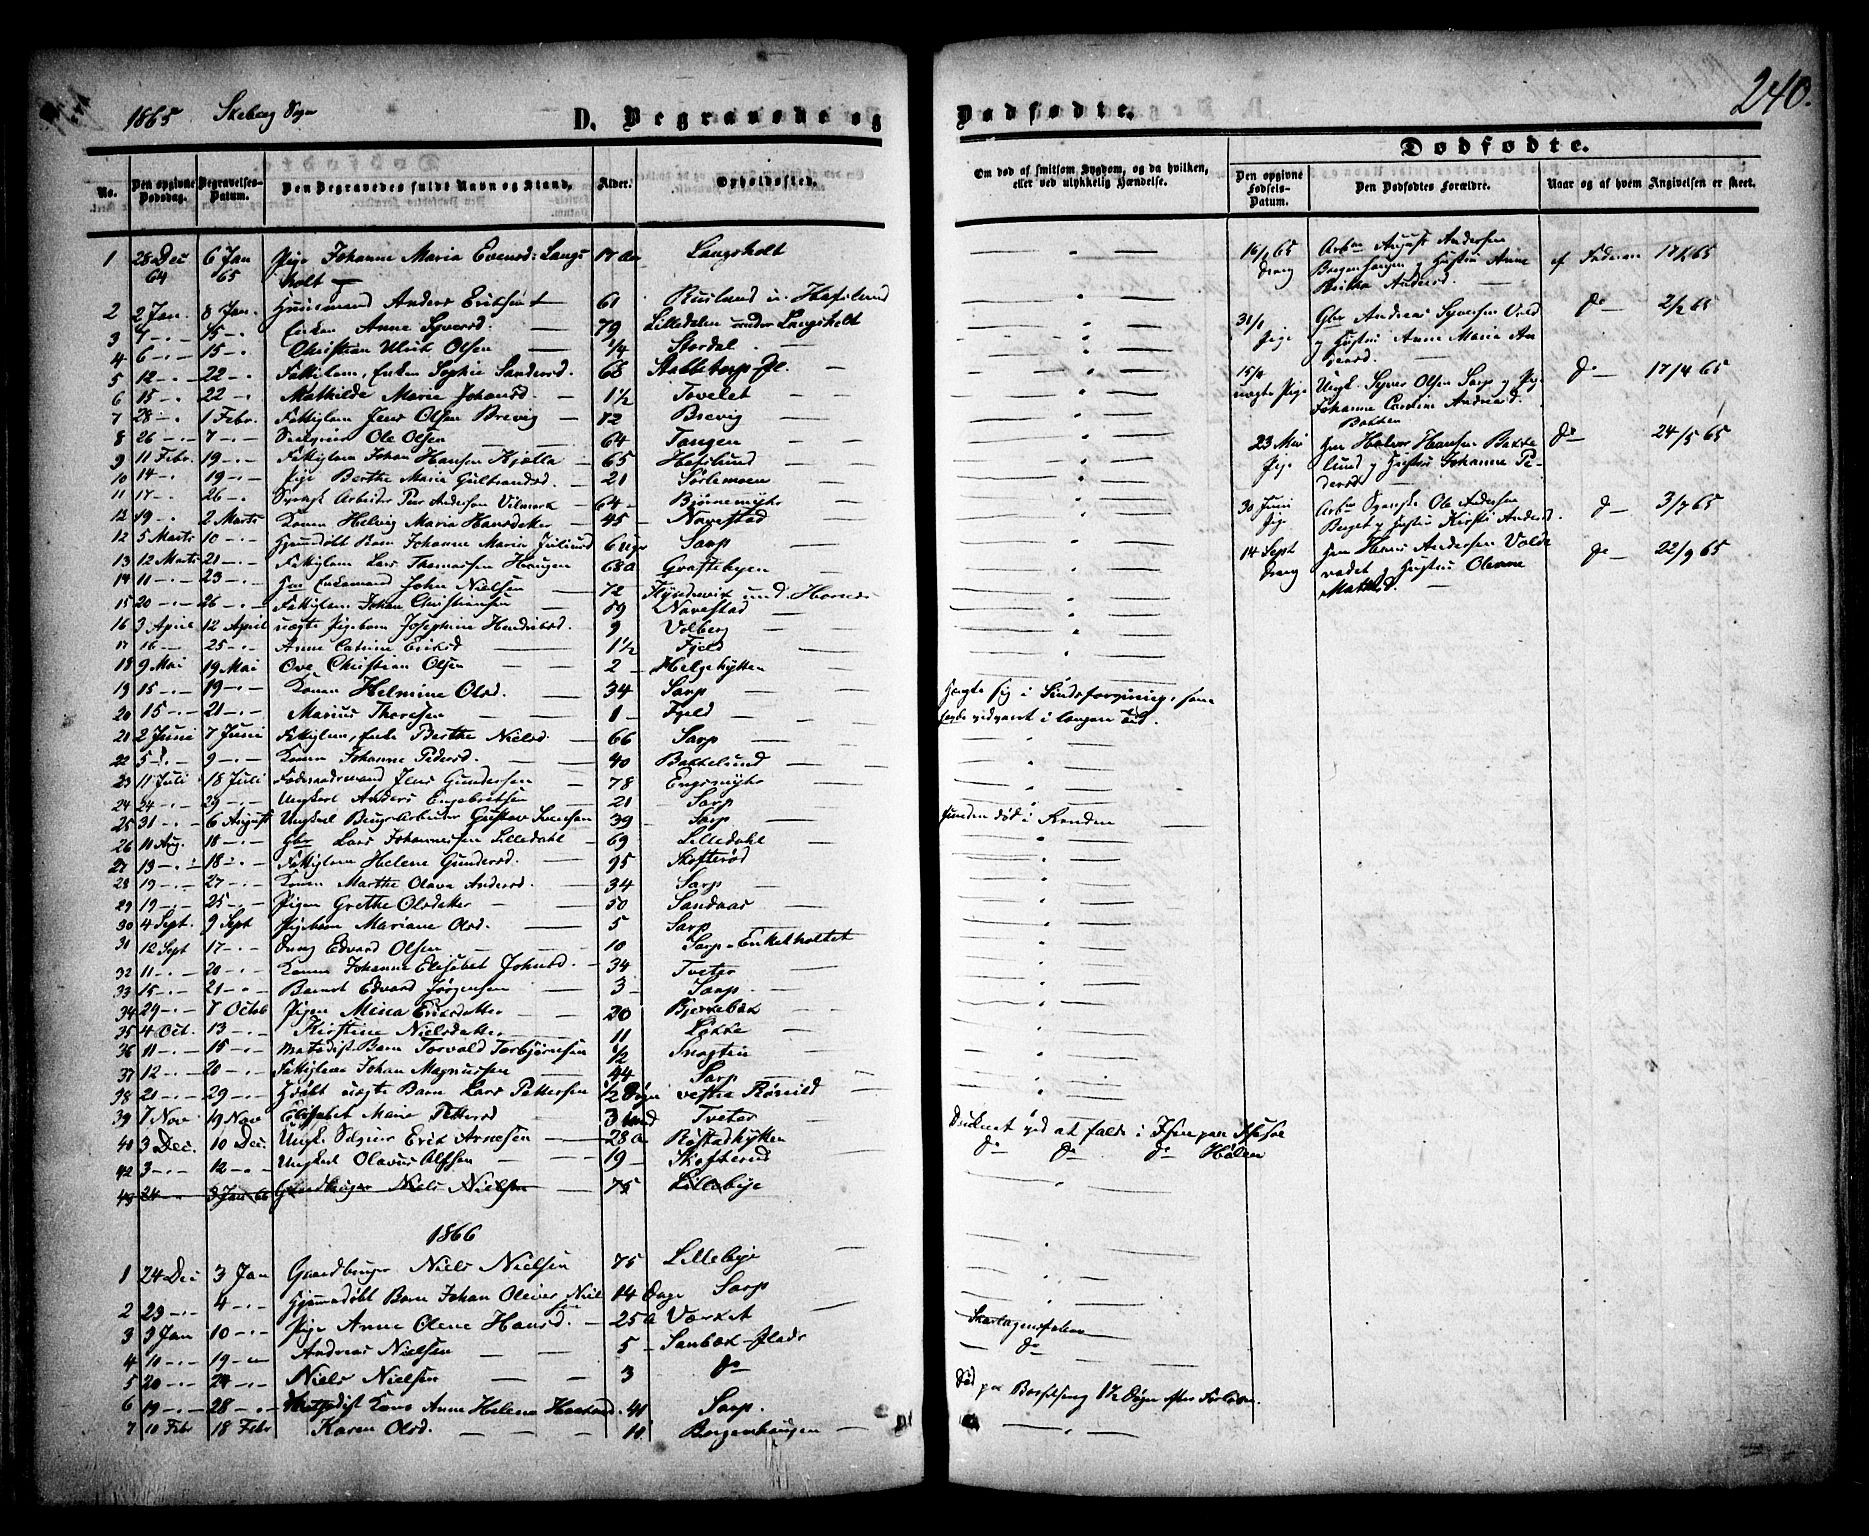 240.
1865 Skeberg Sogn
D. Begravede og Dødfødte.
No. Den opgivne Dødsdag. Begravelses-Datum. Den Begravedes fulde Navn og Stand. Alder. Opholdssted.
1 28 Dec 64 6 Jan 65 Pige Johanne Maria Evensd: Langsholt 17 Aar Langsholt
2 2 Jan. 8 Jan. Huusmand Anders Eriksen 61 Ruilund u. Hafslund
3 4 - 15 - Enken Anne Syversd. 79 Lilledalen under Langsholt
4 6 - 15 - Christian Ulrik Olsen 1/4 Stordal
5 12 - 22 - Fattiglem, Enken Sophie Sandersd. 68 Stabbetorp-Pl.
6 15 - 22 - Mathilde Marie Johansd. 1½ Tovelet
7 28 - 1 Febr. Fattiglem Jens Olsen Brevig 82 Brevig
8 26 - 7 - Ole Olsen 64 Tangen
9 11 Febr. 19 - Fattiglem Johan Hansen Kjølla 65 Hafslund
10 14 - 19 - Pige Berthe Marie Gulbrandsd. 21 Sørlemoen
11 17 - 26 - Svensk Arbeider Per Andersen Vilmark 64 Bjørnemyhr
12 19 - 2 Marts Konen Helvig Maria Hansdatter 45 Navestad
12 5 Marts 10 - Hjemmedøbt Barn Johanne Maria Juliusd 6 uger Sarp
13 12 Marts 21 - Fattiglem Lars Thomassen Haugen 68 a Graftebyen
14 11 - 23 - Enkemand John Nielsen 72 und. Hornes
15 20 - 26 - Fattiglem Johan Christiansen 59 Navestad
16 3 April 12 April uægte Pigebarn Josephine Hendriksd. 9 Valberg
17 16 - 25 - Anne Catrine Eriksd 1½ Fjeld
18 9 Mai 19 Mai Ove Christian Olsen 2 Helgehytten
19 15 - 19 - Konen Helmine Olsd. 34 Sarp
20 15 - 21 - Marius Thoresen 1 Fjeld
21 2 Juni 7 Juni Fattiglem, Enke Berthe Nielsd. 66 Sarp
22 5 - 9 - Konen Johanne Pedersd. 40 Bakkelund
23 11 Juli 18 Juli Føderaadsmand Jens Gundersen 78 Engsmyhr
24 24 - 29 - Ungkarl Anders Engebretsen 21 Sarp
25 31 - 6 August Ungkarl Brugsarbeider Gustav Svensen 39 Sarp
26 11 Aug. 18 - Gbr Lars Johannessen Lilledahl 69 Lilledahl
27 13 - 18 - Fattiglem Helene Gundersd. 95 Skofterød
28 19 - 27 - Konen Marthe Olava Andersd. 34 Sarp
29 19 - 25 - Pigen Grethe Olsdatter 50 Sandaas
30 4 Sept. 9 Sept Pigebarn Mariane Olsd. 5 Sarp
31 12 Sept 17 - Dreng Edvard Olsen 10 Sarp-Enkeholtet
32 11 - 20 - Konen Johanne Elisabet Johnsd. 34 Tveter
33 15 - 21 - Barnet Edvard Jørgensen 3 Sarp
34 29 - 7 Octob Pigen Mina Eriksdatter 20 Bjerkebæk
35 4 Oct. 13 - Kirstine Nielsdatter 11 Løkke
36 11 - 15 - Metodist-Barn Torvald Torbjørnsen ½
37 12 - 20 - Fattiglem Johan Magnussen 44 Sarp
38 21 - 29 - Hjdøbt uægte Barn Lars Pettersen ½ Døgn vestre Rømild
39 7 Nov 19 Nov Elisabet Marie Pettersd 3 Tveter
40 3 Dec. 10 Dec. Ungk. Erik Arnesen 28 a Røstadhytten
42 3 - 12 - Ungkarl Olavus Alfsen 19 Skofterud
43 24 3 Jan 66 Gaardbruger Niels Nielsen 75 Lillebye
1866
1 24 Dec 3 Jan Gaardbruger Niels Nielsen 75 Lillebye
2 23 - 4 - Hjemmedøbt Barn Johan Oliver Nielsen 14 Dage Sarp
3 3 Jan 10 - Pige Anne Olene Hansd. 25 a Værket
4 10 - 19 - Andreas Nielsen 5 Sanbæk-Plads
5 20 - 24 - Niels Nielsen 3 do
6 19 - 28 - Metodist Kone Anne Helena 41 Sarp.
7 10 Febr 18 Febr Karen Olsd. 10 Borgenhaugen
Om død af smitsom Sygdom, og da hvilken, eller ved ulykkelig Hændelse.
Hængte sig i Sindsforvirring, som
havde vedvaret i længere Tid.
funden død i Renden
Druknet ved at falde i Isen paa
do do do Hølen
Skarlagensfeber
do
Død paa Barselseng 1½ Døgn efter Forløsn.
Dødfødte.
Den opgivne Fødsels-Datum. Den Dødfødtes Forældre. Naar og af hvem Angivelsen er skeet.
16/1 65 Dreng Arbm August Andersen Borgenhaugen og Hustru Anne Britha Andersd. af Faderen 17/1 65
31/1 Pige Gbr Andreas Syversen Vold og Hustru Anne Marie Andersd. do 2/2 65
15/4 uægte Pige Ungk. Syver Olsen Sarp og Pige Johanne Caroline Andreasd. Bakken do 17/4 65
23 Mai Pige Halvor Hansen Bakkelund og Hustru Johanne Pedersd do 24/5 65
30 Juni Pige Arbm Svenske Ole Andersen Berget og Hustru Kirsti Andersd. do 3/7 65
14 Sept Dreng Hans Andersen Valdevadet og Hustru Olenne Mathisd. do 22/9 65